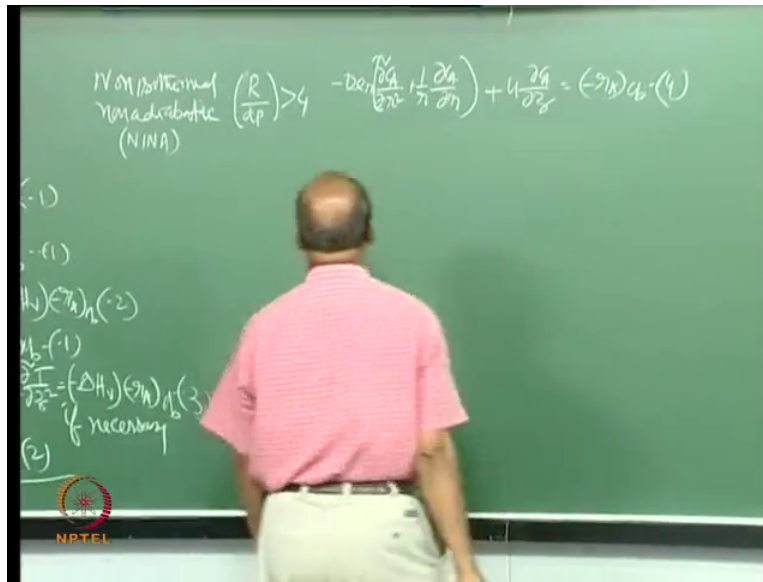 Nonisothermal
nonadiabatic (R/dp) > 4
(NINA)
-Der(∂²CA/∂r² + 1/r ∂CA/∂r) + u ∂CA/∂z = (-rA) ab -(4)
(-1)
-(1)
Hv)(-rA)ab(-2)
ab -(1)
∂²T/∂z² = (-ΔHv)(-rA) ab (3)
if necessary
(2)
NPTEL